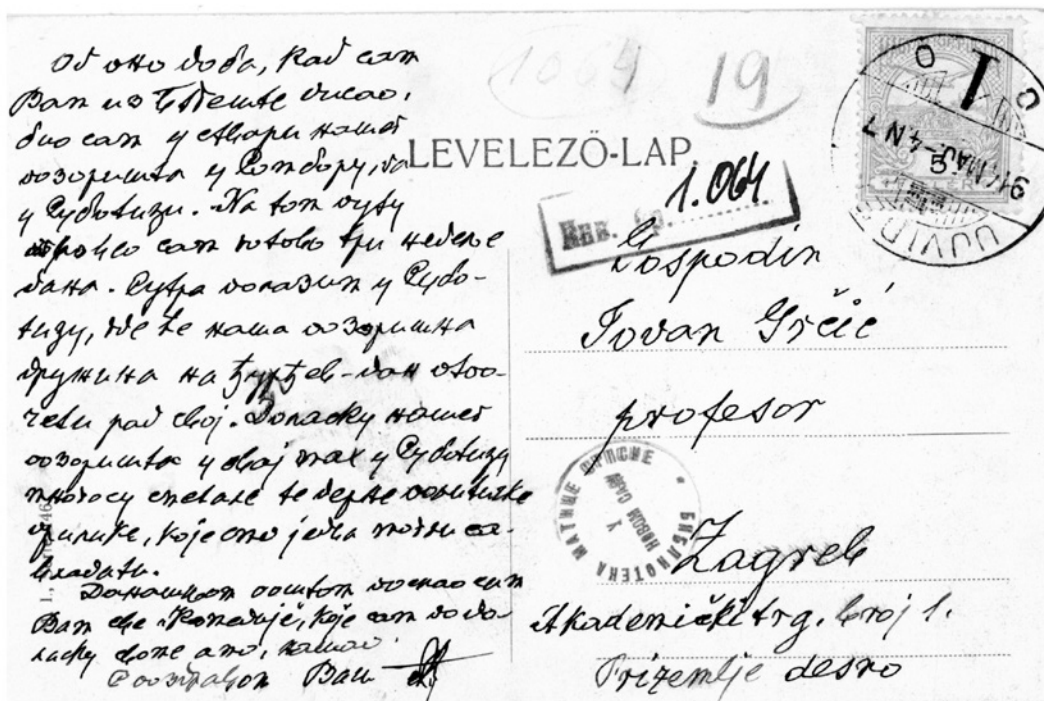 Од оно доба, кад сам
Вам из Пеште писао,
био сам у ствари нашег
позоришта у Сомбору, па
у Суботици. На том путу
провео сам готово три недеље
дана. Сутра полазим у Субо-
тицу, где ће наша позоришна
дружина на Ђурђев-дан отпо-
чети рад свој. Доласку нашег
позоришта у овај мах у Суботицу
много су сметале те политичке
прилике, које смо једва могли са-
владати.
Данашњом поштом послао сам
Вам све Комедије, које сам по до-
ласку амо,
С поштовањем Ваш
1064
19
LEVELEZŐ-LAP.
1.064
Gospodin
Jovan Grčić
profesor
Zagreb
Akademički trg. broj 1.
Prizemlje desno
БИБЛИОТЕКА МАТИЦЕ СРПСКЕ
У
НОВОМ САДУ
914 MAJ -4 N 7
5